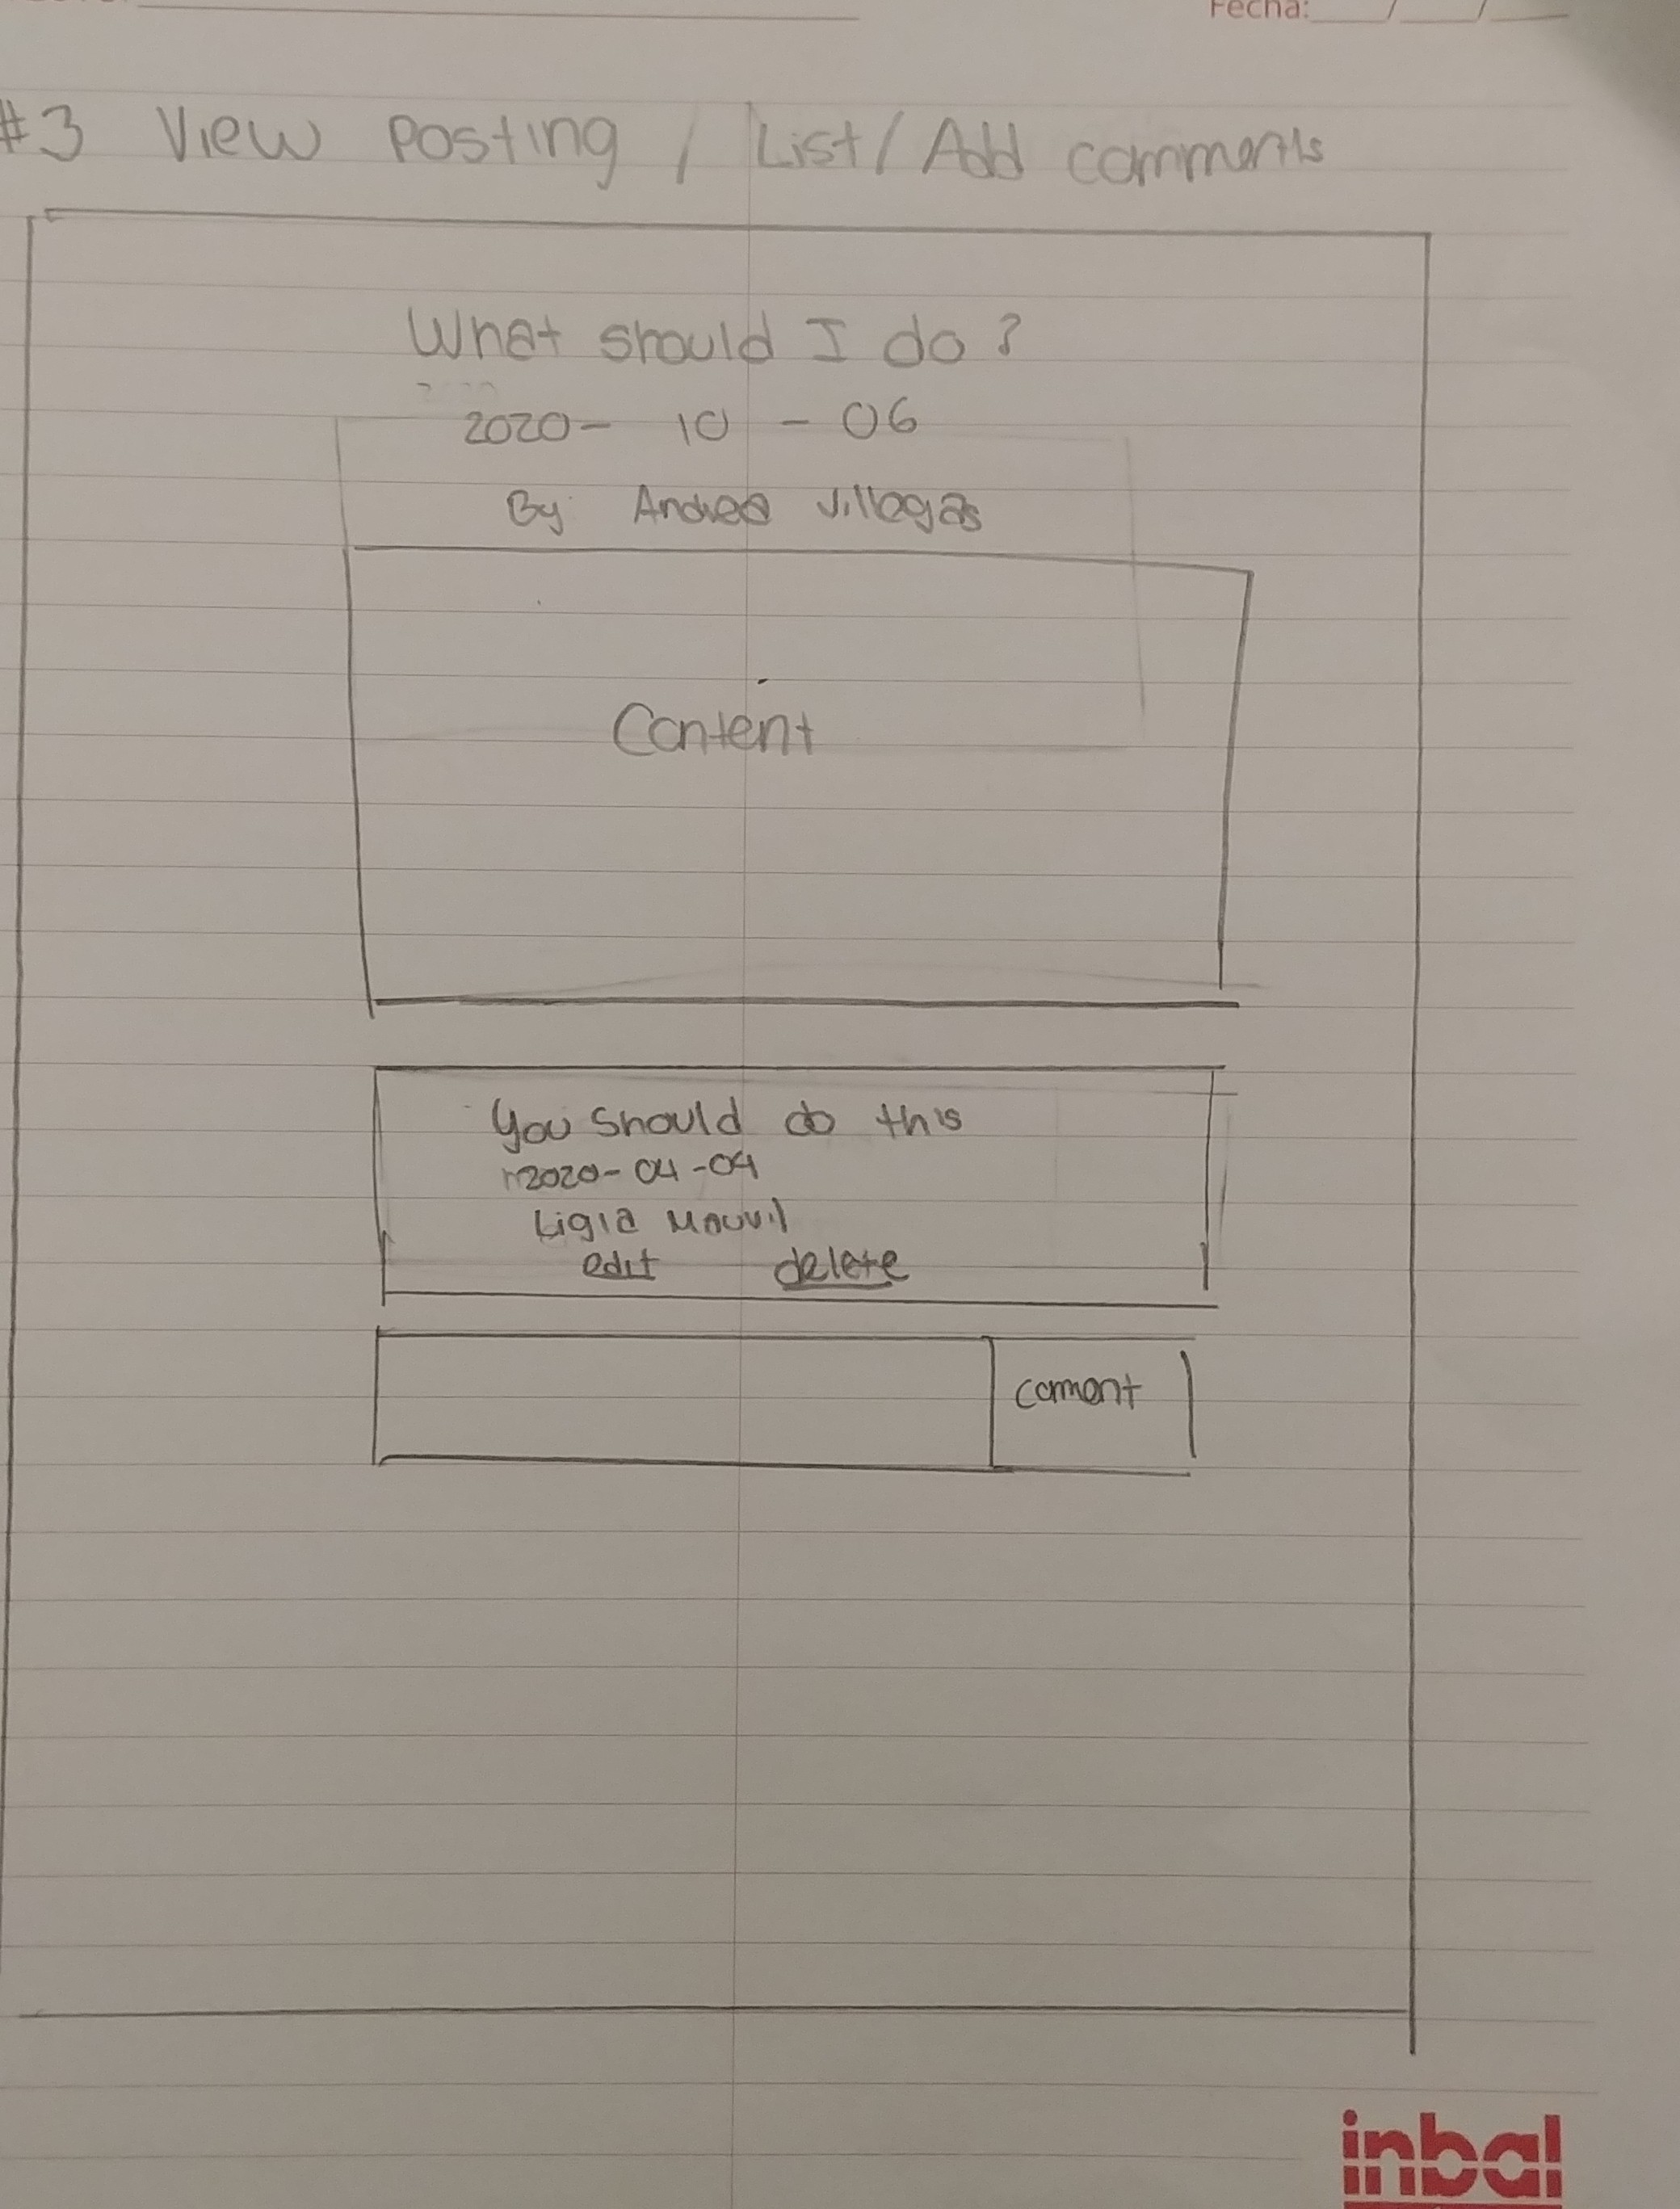 Fecha: / /
#3 View posting / List / Add comments
What should I do?
2020- 10 - 06
By: Andrea Villegas
Content
You should do this
2020-04-04
Ligia
edit delete
coment
inbal